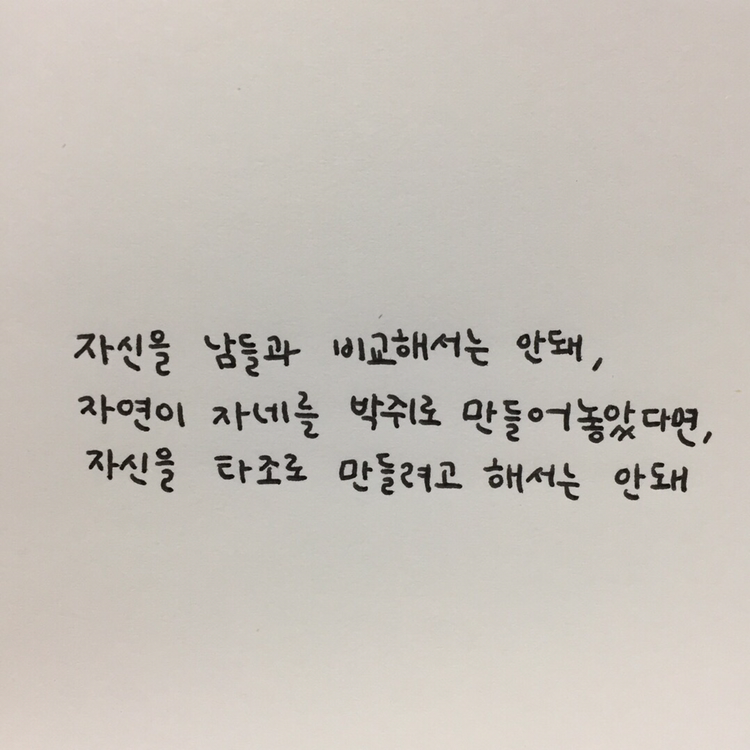 자신을 남들과 비교해서는 안돼,
자연이 자네를 박쥐로 만들어놓았다면,
자신을 타조로 만들려고 해서는 안돼